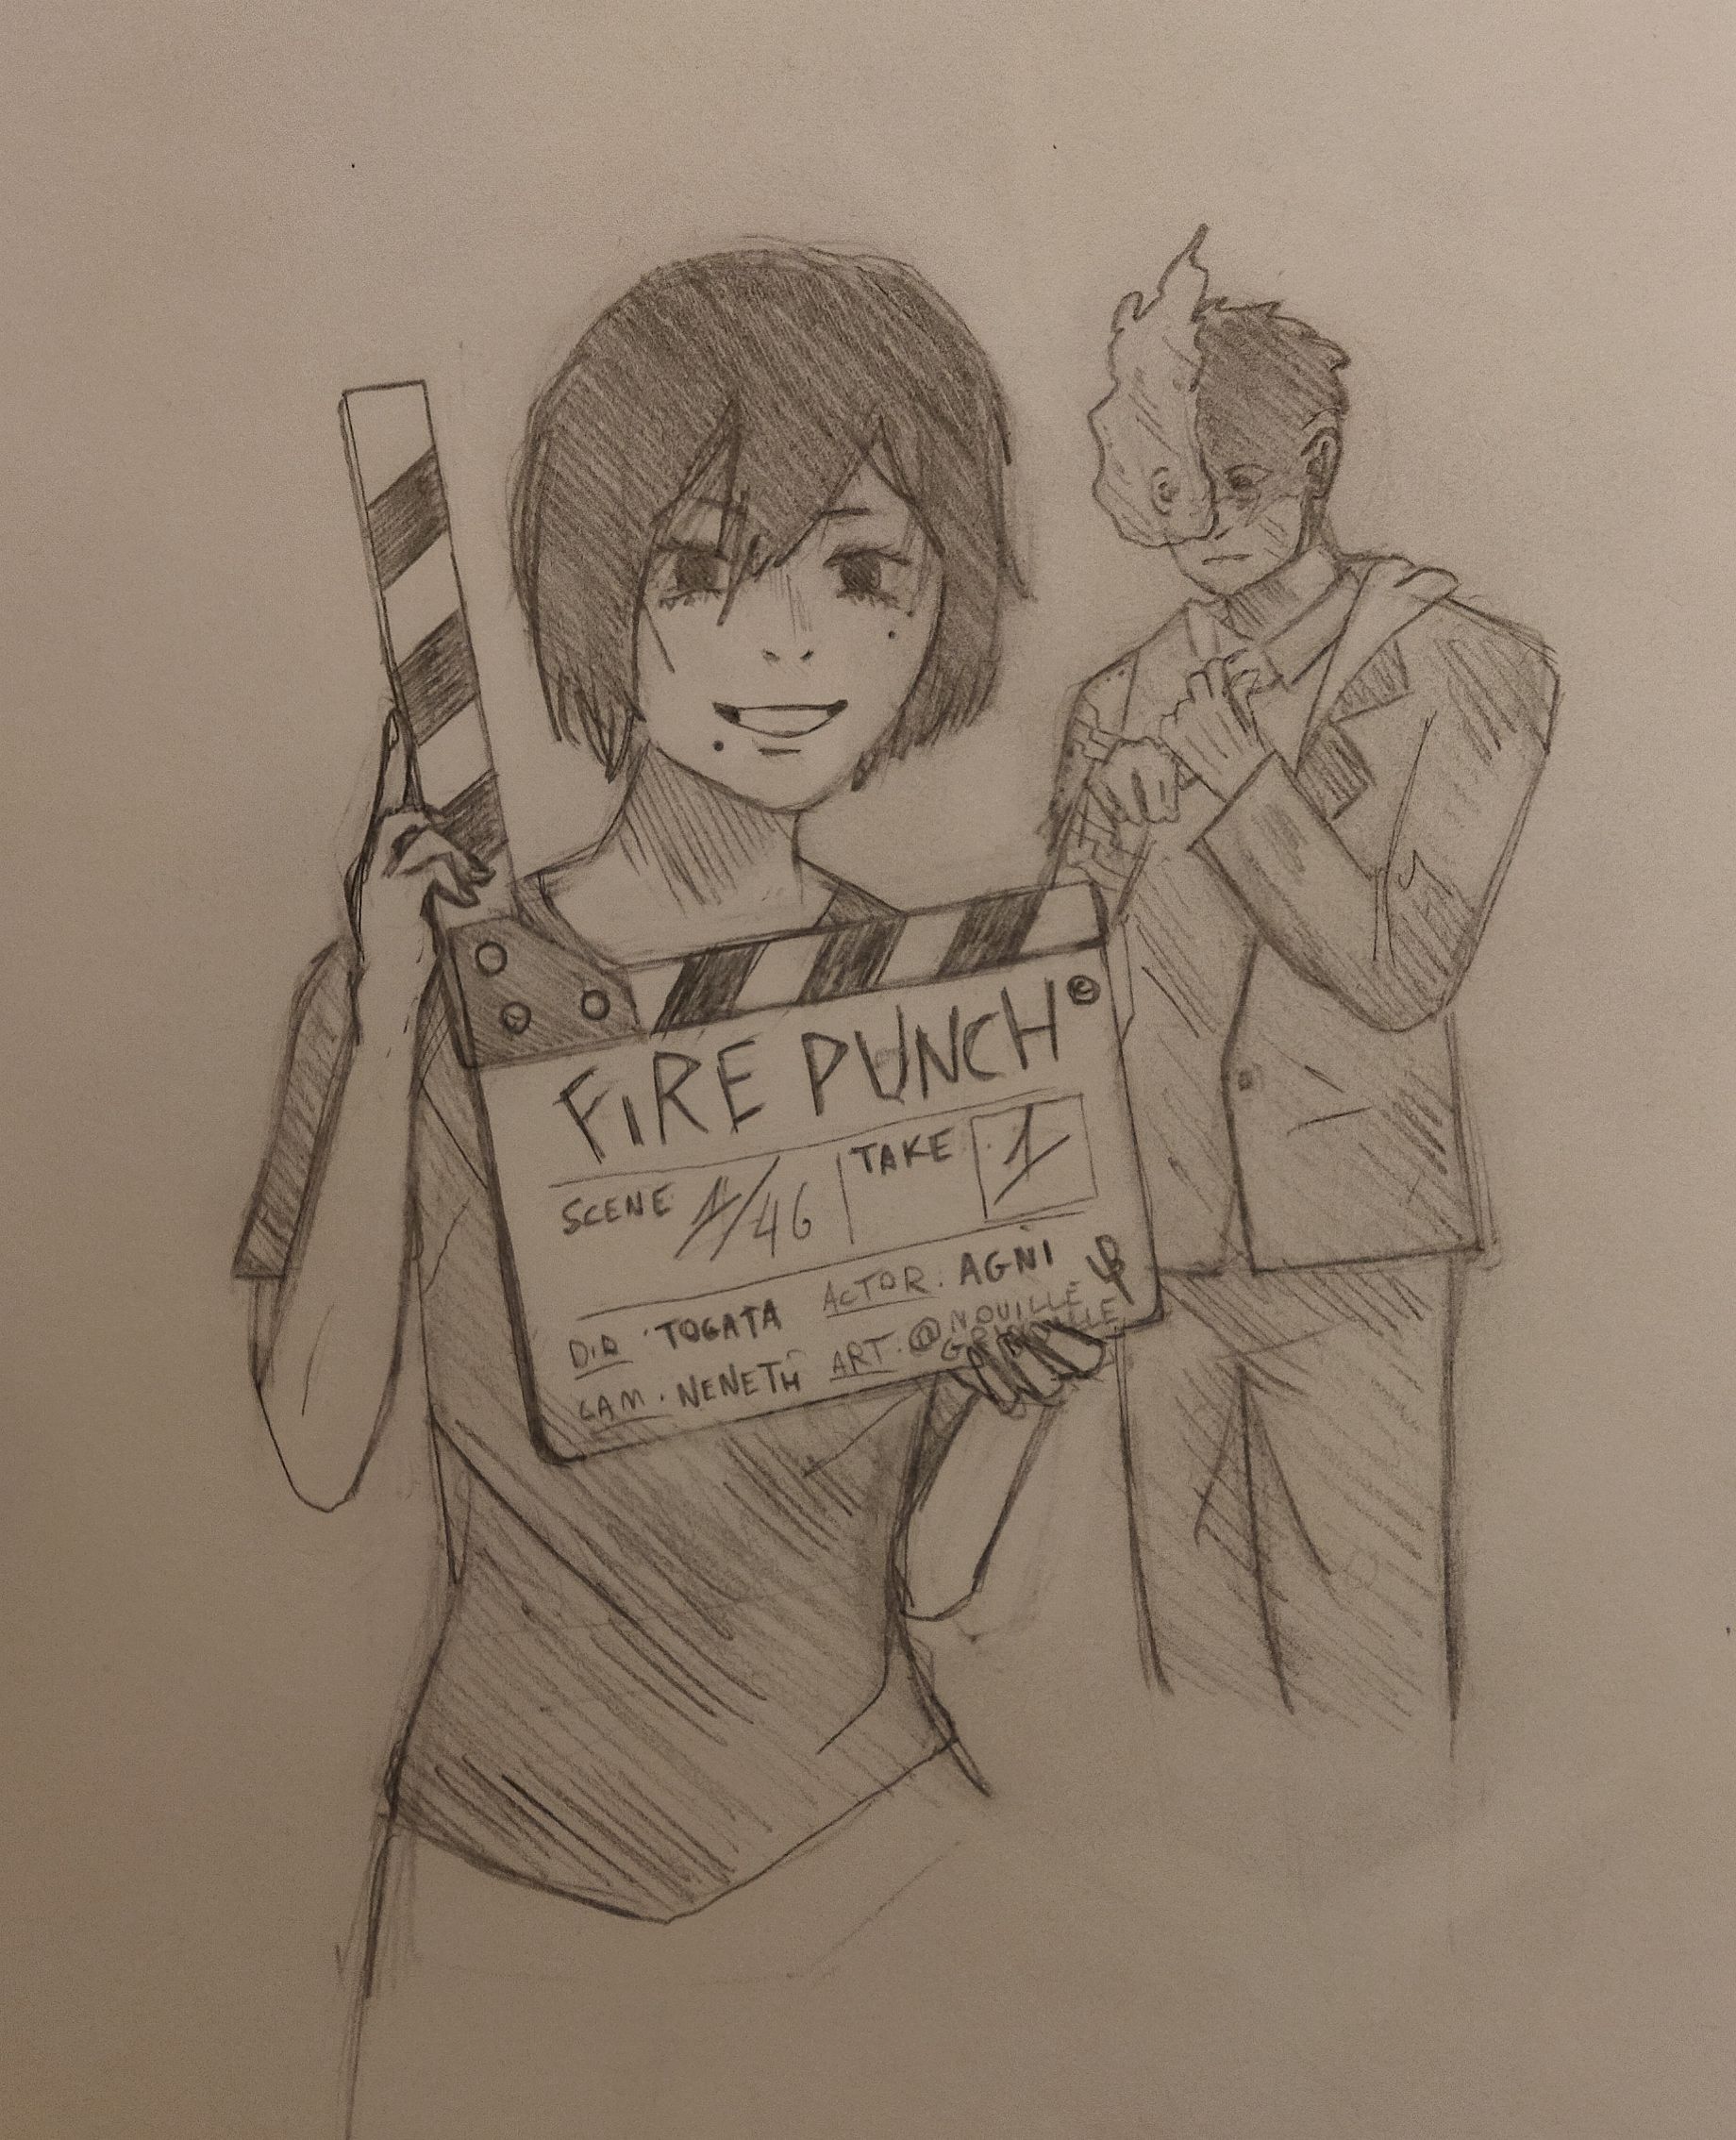 FiRE PUNCH
SCENE 1/46 TAKE 1
DiR TOGATA ACTOR: AGNi
CAM. NENETH ART. @NOUILLE